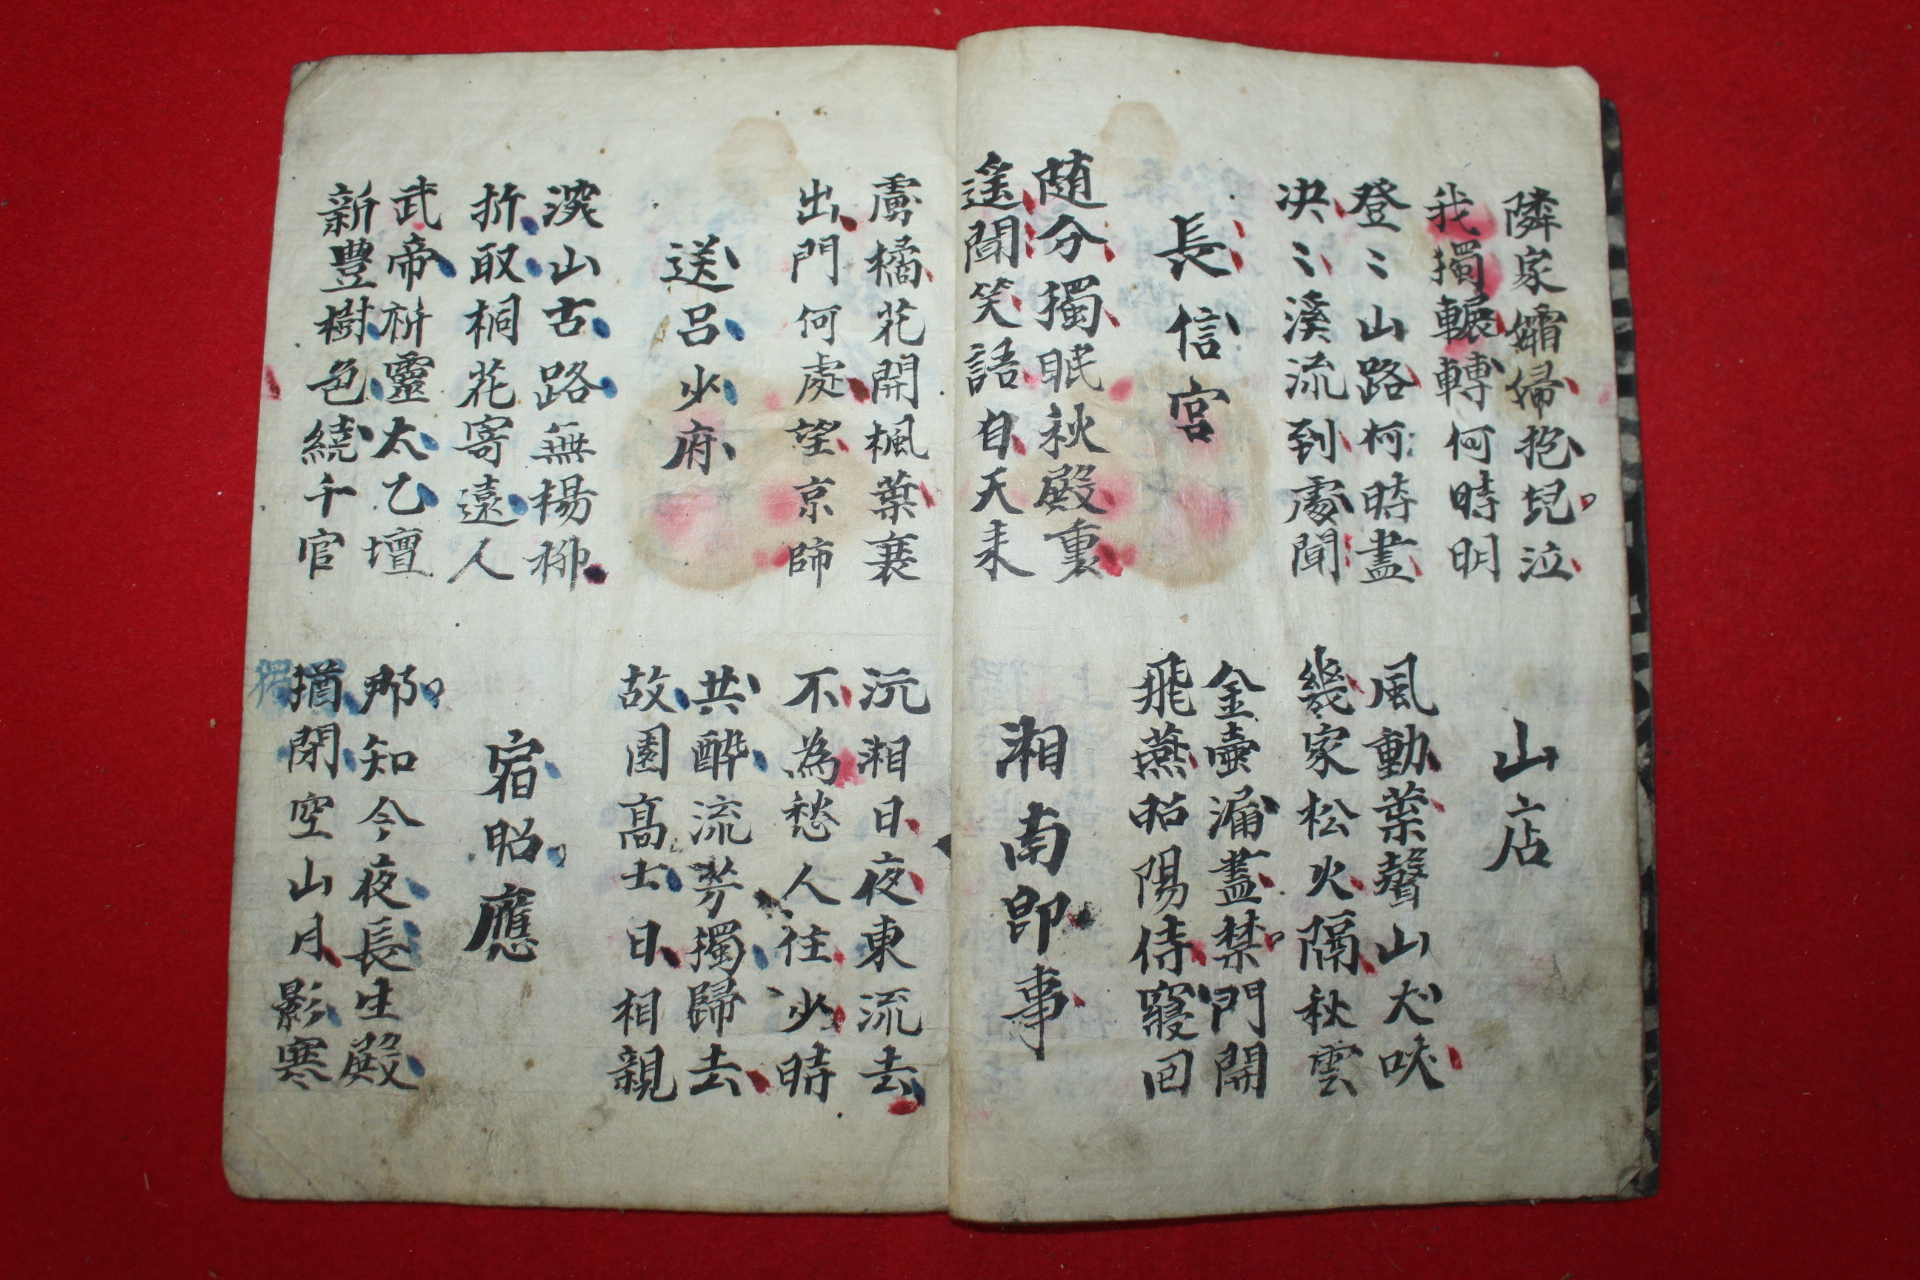 隣家孀婦抱兒泣
我獨輾轉何時明
山店
登〻山路柯時盡
决〻溪流到處聞
風動葉聲山犬吠
幾家松火隔秋雲
長信宮
金壺漏盡禁門開
飛燕昭陽侍寢回
随分獨眠秋殿裏
遙聞笑語自天来
湘南即事
虜橘花開楓葉衰
出門何處望京師
沅湘日夜東流去
不為愁人住少時
送呂少府
共醉流芳獨歸去
故園高士日相親
深山古路無楊柳
折取桐花寄遠人
宿昭應
武帝祈靈太乙壇
新豊樹色繞千官
那知今夜長生殿
猶閉空山月影寒
獨